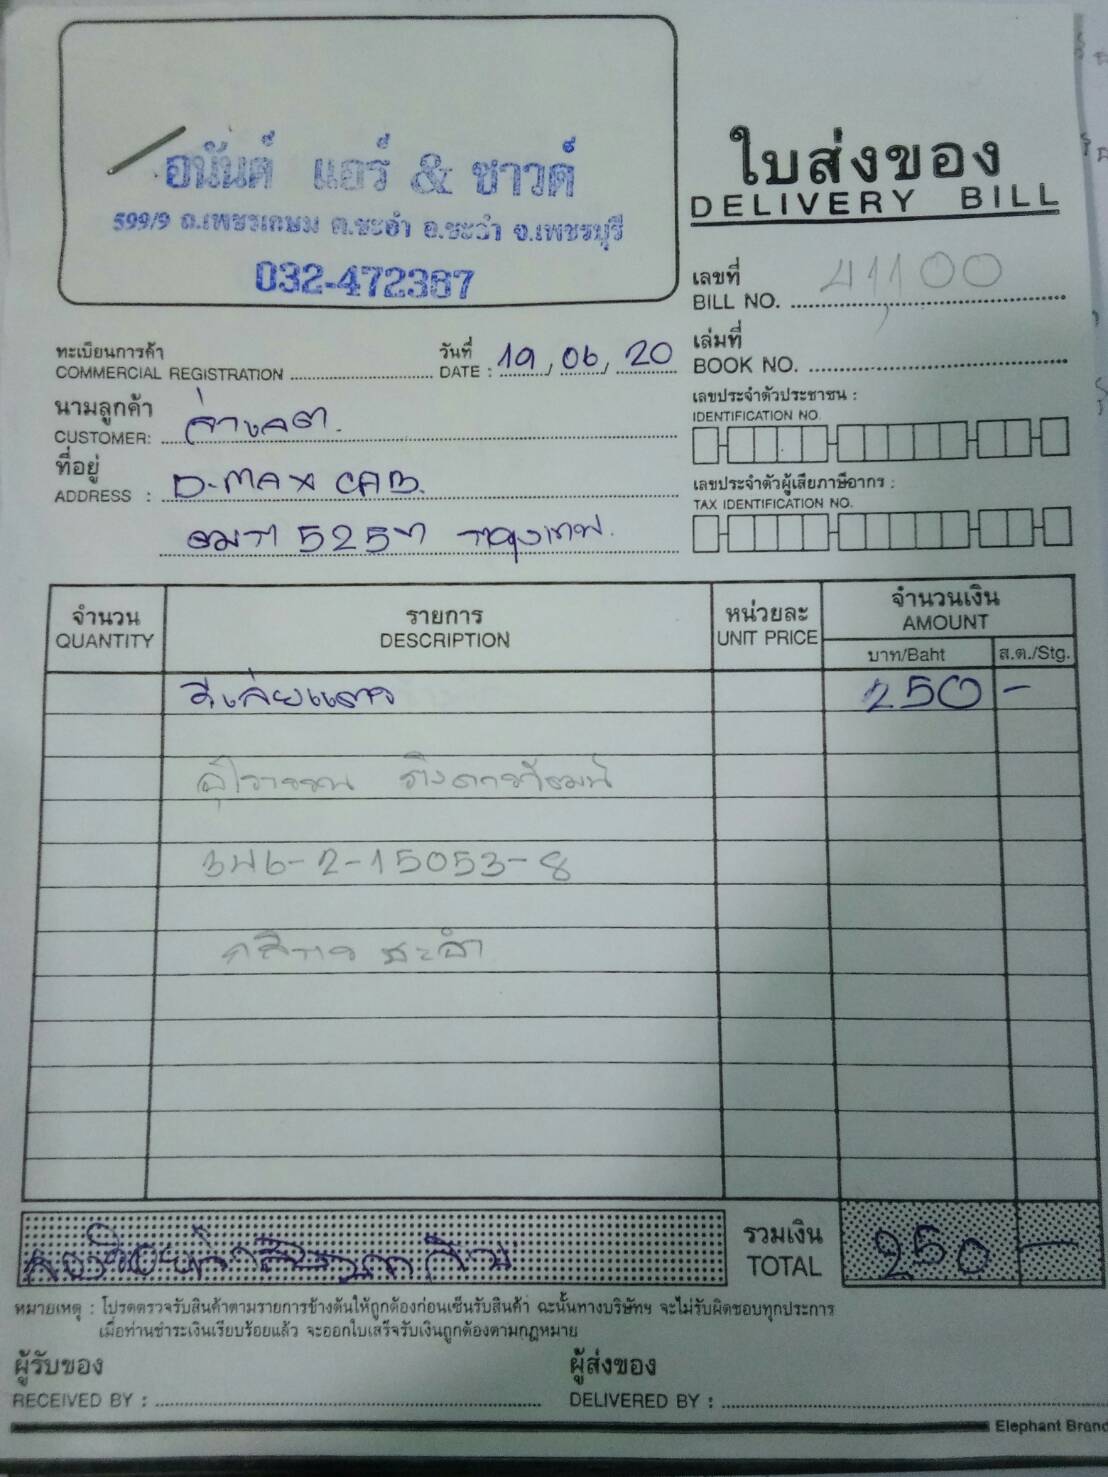 อนันต์ แอร์ & ซาวด์
599/9 ถ.เพชรเกษม ต.ชะอำ อ.ชะอำ จ.เพชรบุรี
032-472387
ใบส่งของ
DELIVERY BILL
เลขที่
BILL NO. 41,100
ทะเบียนการค้า
COMMERCIAL REGISTRATION
วันที่
DATE : 19, 06, 20
เล่มที่
BOOK NO.
นามลูกค้า
CUSTOMER: ช่างคต.
ที่อยู่
ADDRESS : D-MAX CAB.
5257 กรุงเทพ.
เลขประจำตัวประชาชน :
IDENTIFICATION NO.
เลขประจำตัวผู้เสียภาษีอากร :
TAX IDENTIFICATION NO.
จำนวน รายการ หน่วยละ จำนวนเงิน
QUANTITY DESCRIPTION UNIT PRICE AMOUNT
บาท/Baht ส.ต./Stg.
250 -
-2-15053-8
กสิกร ชะอำ
รวมเงิน
TOTAL 250 -
หมายเหตุ : โปรดตรวจรับสินค้าตามรายการข้างต้นให้ถูกต้องก่อนเซ็นรับสินค้า ฉะนั้นทางบริษัทฯ จะไม่รับผิดชอบทุกประการ
เมื่อท่านชำระเงินเรียบร้อยแล้ว จะออกใบเสร็จรับเงินถูกต้องตามกฎหมาย
ผู้รับของ
RECEIVED BY :
ผู้ส่งของ
DELIVERED BY :
Elephant Brand